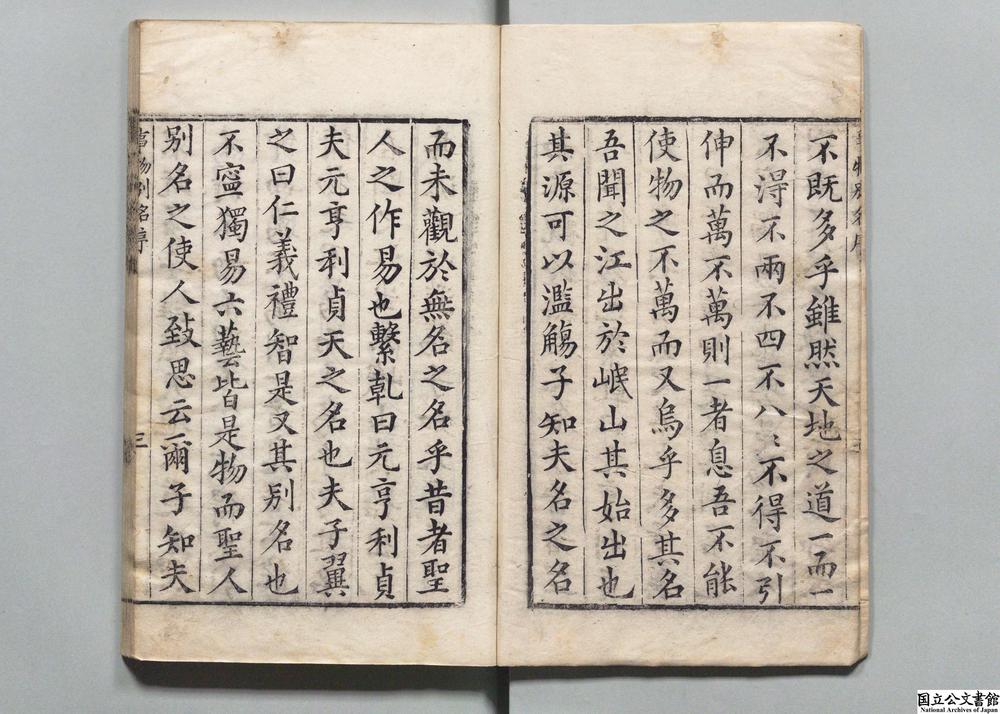 不既多乎雖然天地之道一而一
不得不兩不四不八〻不得不引
伸而萬不萬則一者息吾不能
使物之不萬而又烏乎多其名
吾聞之江出於岷山其始出也
其源可以濫觴子知夫名之名
而未觀於無名之名乎昔者聖
人之作易也繫乹曰元亨利貞
夫元亨利貞天之名也夫子翼
之曰仁義禮智是又其别名也
不寍獨易六藝皆是物而聖人
别名之使人致思云爾子知夫
事物别名序
三
国立公文書館
National Archives of Japan